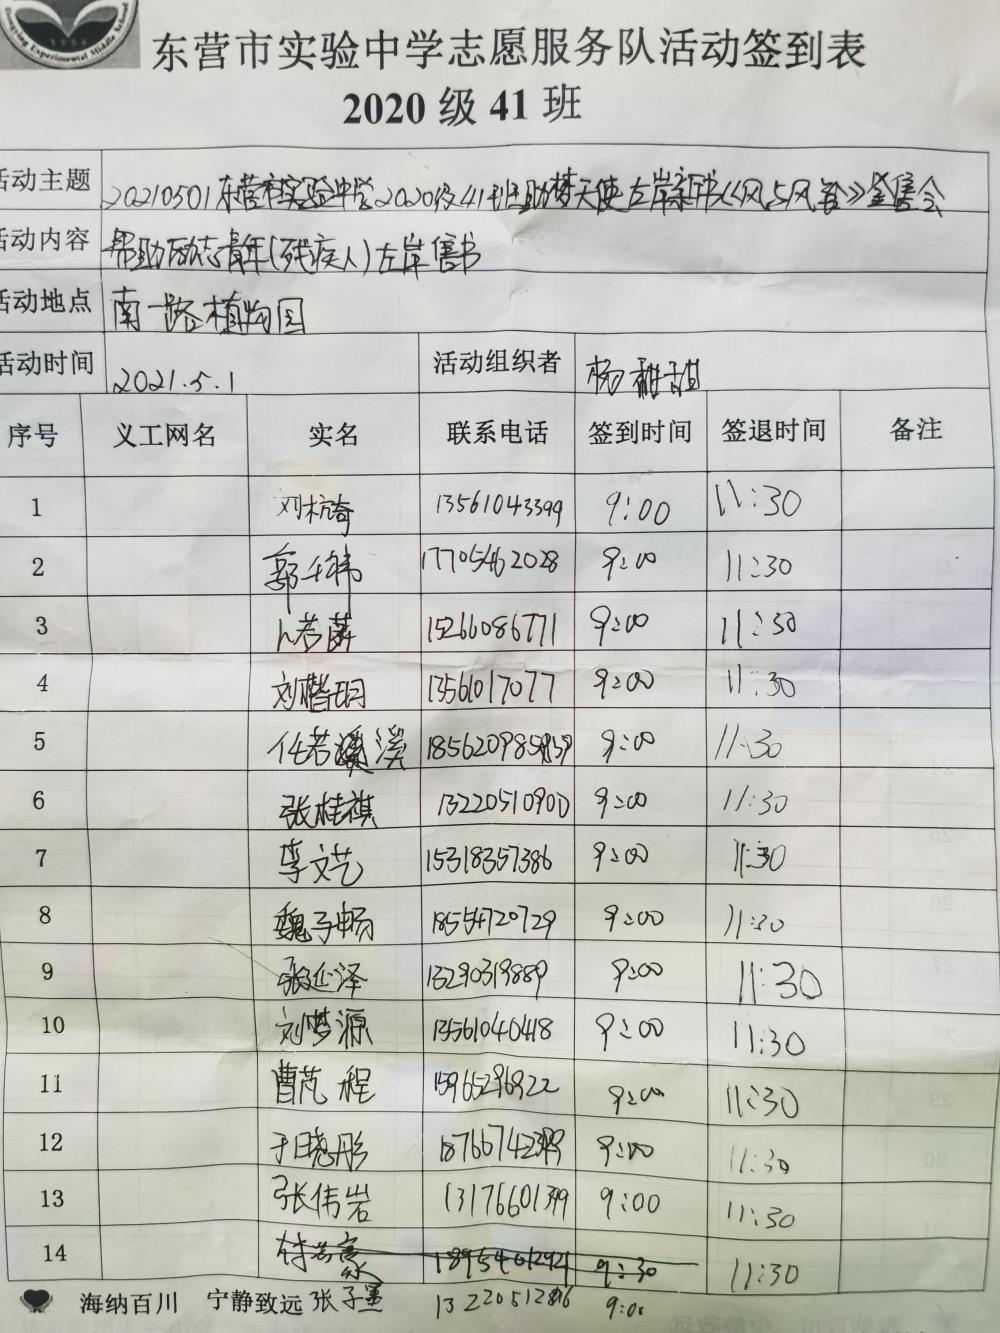 Dongying Experimental Middle School
1952
东营市实验中学志愿服务队活动签到表
2020 级 41 班
活动主题 20210501东营市实验中学2020级41班助梦天使左岸新书《风与风铃》签售会
活动内容 帮助励志青年(残疾人)左岸售书
活动地点 南一路植物园
活动时间 2021.5.1 活动组织者 杨甜甜
序号 义工网名 实名 联系电话 签到时间 签退时间 备注
1 刘杭奇 13561043399 9:00 11:30
2 郭千祎 17705462028 9:00 11:30
3 15266086771 9:00 11:30
4 刘楷玥 13561017077 9:00 11:30
5 任若溪 9:00 11:30
6 张桂祺 13220510900 9:00 11:30
7 李文艺 15318357386 9:00 11:30
8 魏子畅 18554720729 9:00 11:30
9 张延泽 13290319889 9:00 11:30
10 刘梦源 13561040418 9:00 11:30
11 曹范程 15965296922 9:00 11:30
12 于晓彤 9:00 11:30
13 张伟岩 13176601399 9:00 11:30
14 9:30 11:30
海纳百川 宁静致远 张子墨 9:00